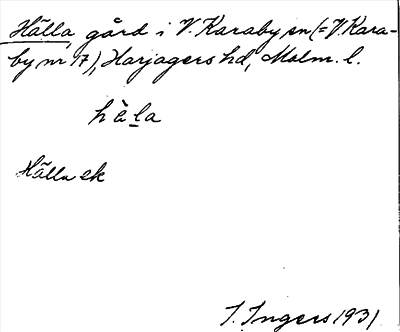 Hälla gård i V. Karaby sn (= V. Kara-
by nr 17), Harjagers hd, Malm. l.
hàla
Hälla ek
I. Ingers 1931